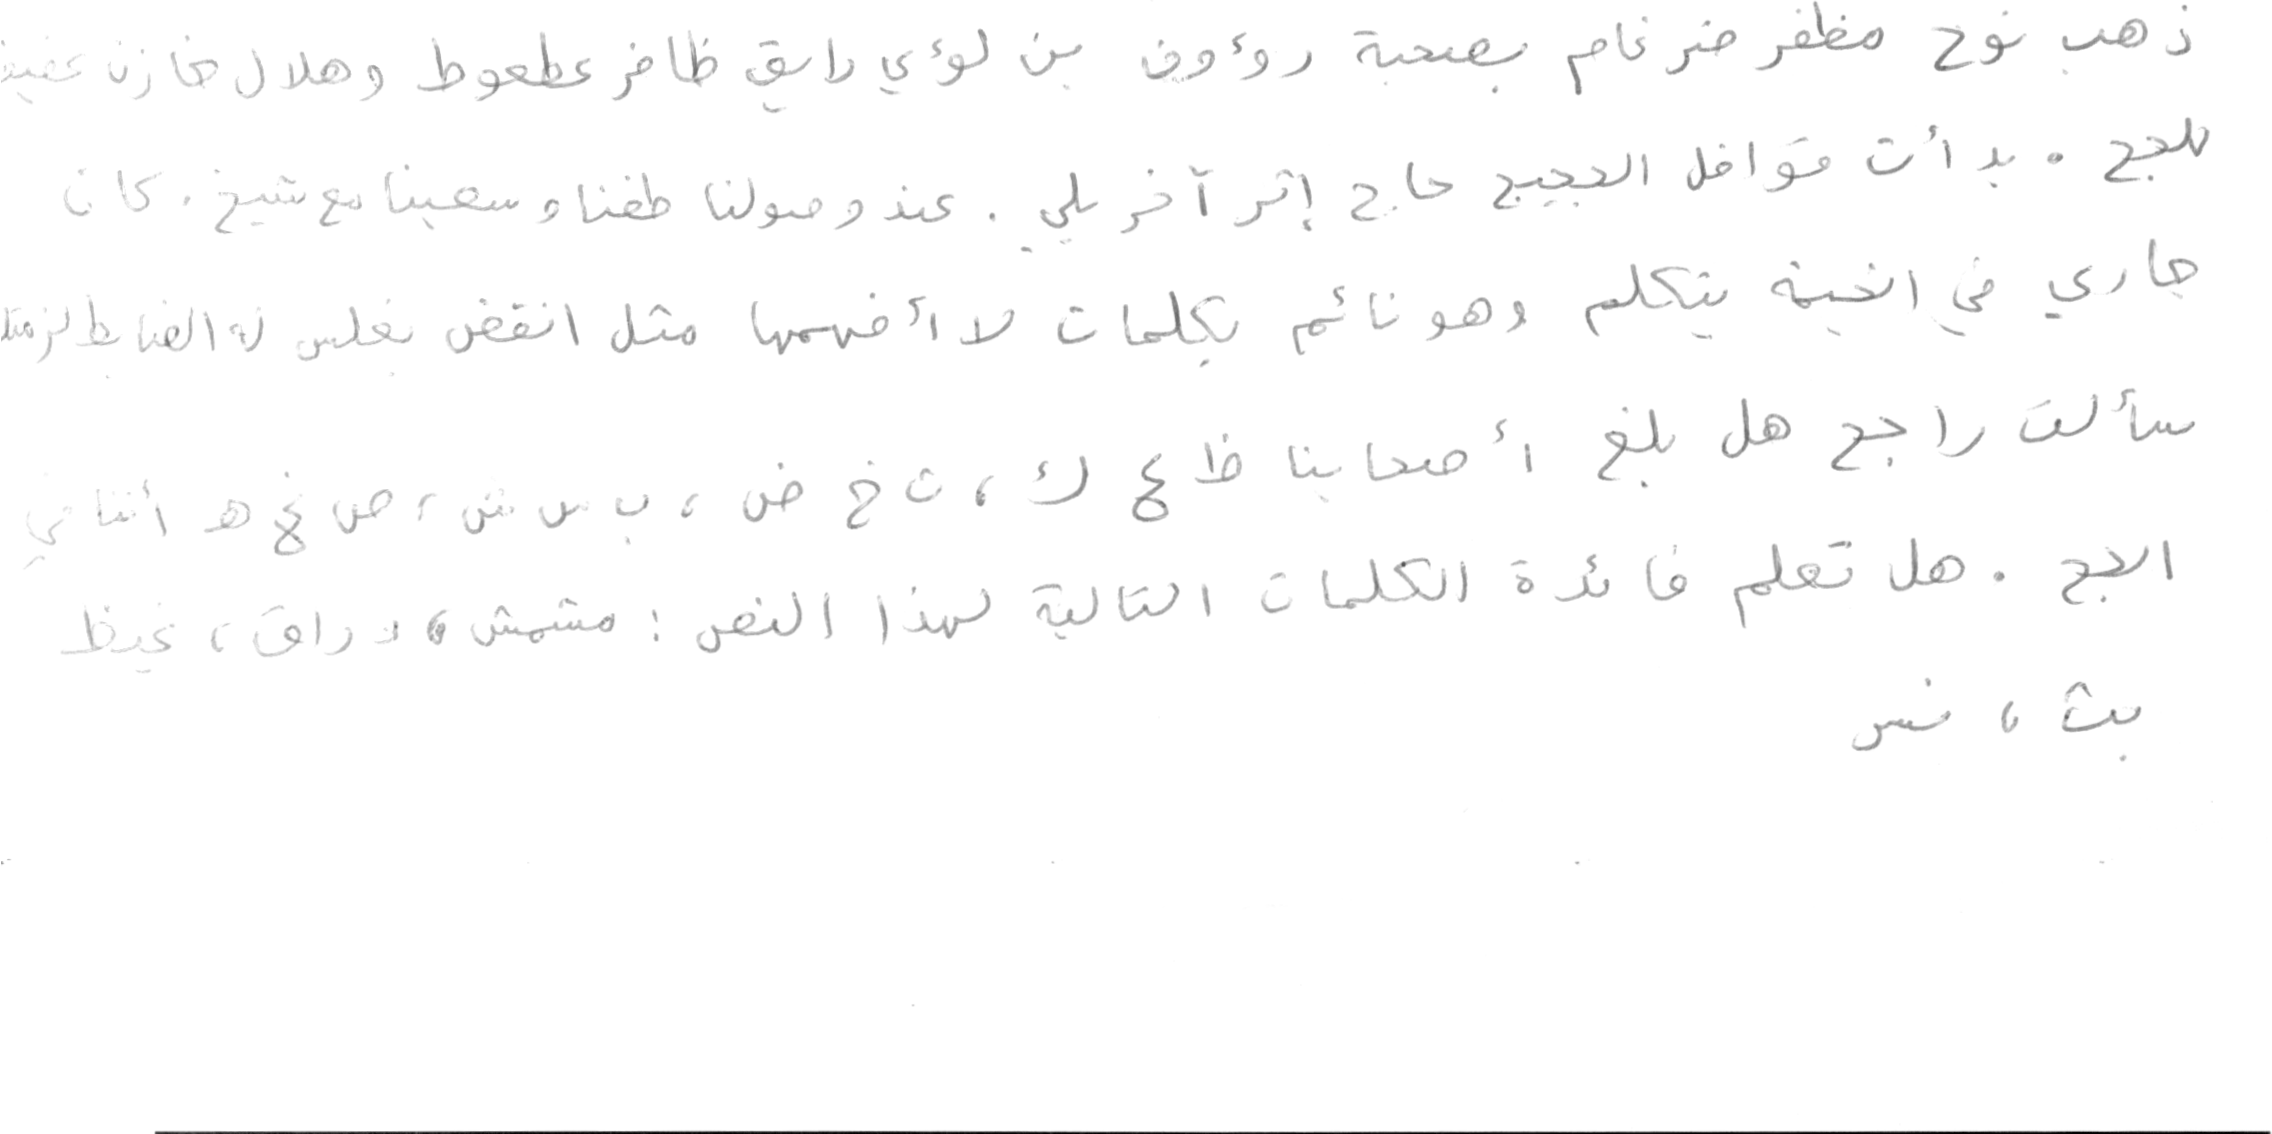 ذهب نوح مظفر ضرغام بصحبة رؤوف بن لؤي رايق ظافر عطعوط وهلال خازن عفيف
للحج . بدأت قوافل الحجيج حاج إثر آخر يلبي . عند وصولنا طفنا وسعينا مع شيخ . كان
جاري في الخيمة يتكلم وهو نائم بكلمات لا أفهمها مثل انقض بغلس له الضابط
سألت راجح هل بلغ أصحابنا ظ ع ك ، ث خ ض ، ب س ش ، ص غ هـ أثنا في
الحج . هل تعلم فائدة الكلمات التالية لهذا النص : مشمش ، دراق ، غيظ
بث ، نس